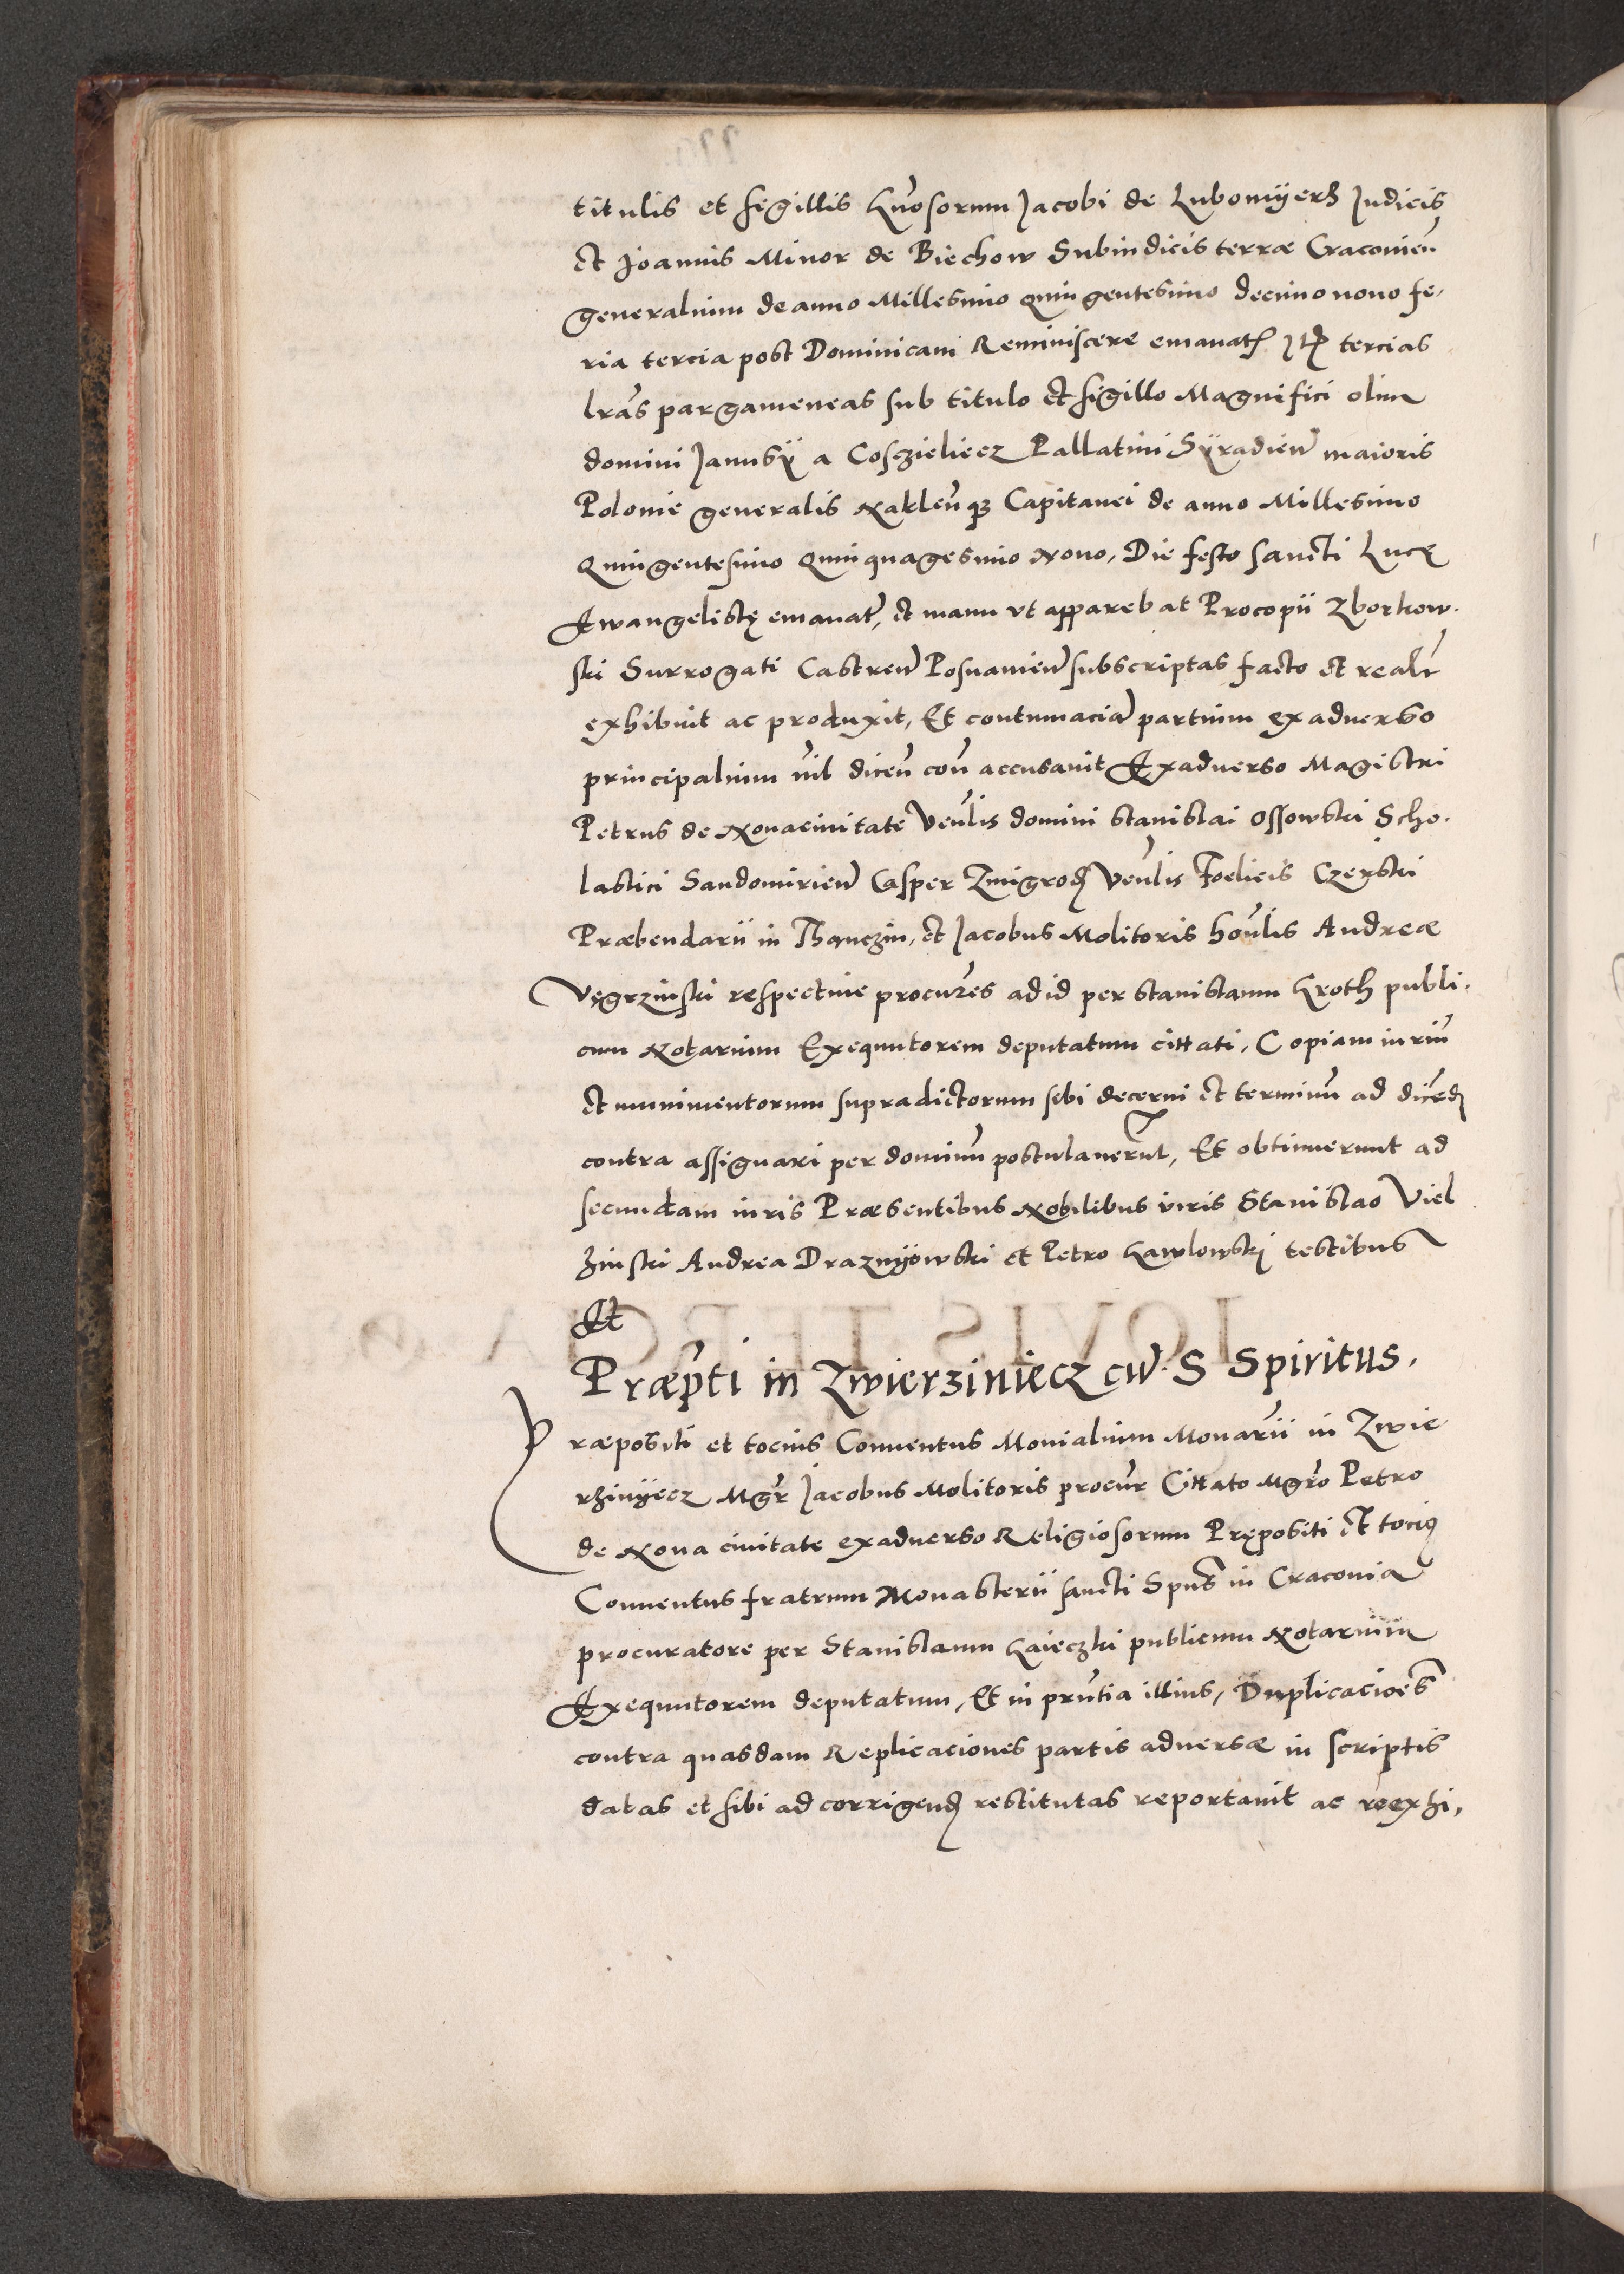 titulis et sigillis gn̄osorum Jacobi de Lubomÿerz Judicis
et Joannis Minor de Biechow Subiudicis terræ Cracouien̄
generalium de anno Millesimo quingentesimo decimo nono fe,
ria tercia post Dominicam Reminiscere emanat̄ It̄ tercias
lrās pargameneas sub titulo et sigillo Magnifici olim
domini Janusÿ a Cosczieliecz Pallatini Sÿradien̄ maioris
Polonie generalis Naklen̄qȝ Capitanei de anno Millesimo
Quingentesimo quinquagesimo Nono, Die festo sancti Lucę
Ewangelistę emanat̄, et manu vt apparebat Procopii Zborkow.
ski Surrogati Castren̄ Posnanien̄ subscriptas facto et realr̄
exhibuit ac produxit, Et contumaciā partium ex aduerso
principalium nīl dicen̄ con̄ accusauit Exaduerso Magistri
Petrus de Nouaciuitate Ven̄lis domini Stanislai Ossowski Scho.
lastici Sandomirien̄ Casper Zmigrod̄ Ven̄lis Foelicis Czerski
Præbendarii in Thanczin, et Jacobus Molitoris hon̄lis Andreæ
Vęgrzinski respectiue procur̄es ad id per Stanislaum Groth publi.
cum Notarium Exequutorem deputatum cittati, Copiam iuriū
et munimentorum supradictorum sibi decerni et terminū ad dicēd̄
contra assignari per dominū postulauerūt, Et obtinuerunt ad
secundam iuris Præsentibus Nobilibus viris Stanislao Viel
zinski Andrea Draznÿowski et Petro Gawlowski testibus
Et
Præpti in Zwierziniecz cū S Spiritus.
Præpositi et tocius Conuentus Monialium Monar̄ii in Zwie
rzinÿecz Mgr̄ Jacobus Molitoris procur̄ Cittato Mgr̄o Petro
de Noua ciuitate exaduerso Religiosorum Prępositi et tociꝯ
Conuentus fratrum Monasterii sancti Spūs in Cracouia
procuratore per Stanislaum Gaieczki publicum Notarium
Exequutorem deputatum, Et in prn̄tia illius, Duplicaciōes
contra quasdam Replicaciones partis aduersæ in scriptis
datas et sibi ad corrigend̄ restitutas reportauit ac reexhi,